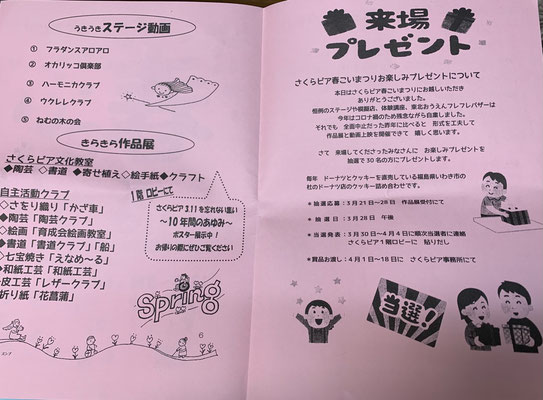 うきうきステージ動画
① フラダンスアロアロ
② オカリッコ倶楽部
③ ハーモニカクラブ
④ ウクレレクラブ
⑤ ねむの木の会
きらきら作品展
さくらピア文化教室
◆陶芸 ◇書道 ◆寄せ植え◇絵手紙◆クラフト
自主活動クラブ
◇さをり織り「かざ車」
◆陶芸「陶芸クラブ」
◇絵画「育成会絵画教室」
◆書道「書道クラブ」「船」
◇七宝焼き「えなめ~る」
◆和紙工芸「和紙工芸」
皮工芸「レザークラブ」
折り紙「花菖蒲」
1階 ロビーにて
さくらピア3.11を忘れない思い
~10年間のあゆみ~
ポスター展示中!
お帰りの際にぜひご覧ください
Spring
来場
プレゼント
さくらピア春こいまつりお楽しみプレゼントについて
本日はさくらピア春こいまつりにお越しいただき
ありがとうございました。
恒例のステージや模擬店、体験講座、東北おうえんフレフレバザーは
今年はコロナ禍のため残念ながら自粛しました。
それでも 全面中止だった昨年に比べると 形式を工夫して
作品展と動画上映を開催できて 嬉しく思います。
さて 来場してくださったみなさんに お楽しみプレゼントを
抽選で30名の方にプレゼントします。
毎年 ドーナツとクッキーを直売している福島県いわき市の
杜のドーナツ店のクッキー詰め合わせです。
*抽選応募：3月21日~28日 作品展受付にて
*抽選日：3月28日 午後
*当選発表：3月30日~4月4日に順次当選者に連絡
さくらピア1階ロビーに 貼りだし
*賞品お渡し：4月1日~18日に さくらピア事務所にて
当選!